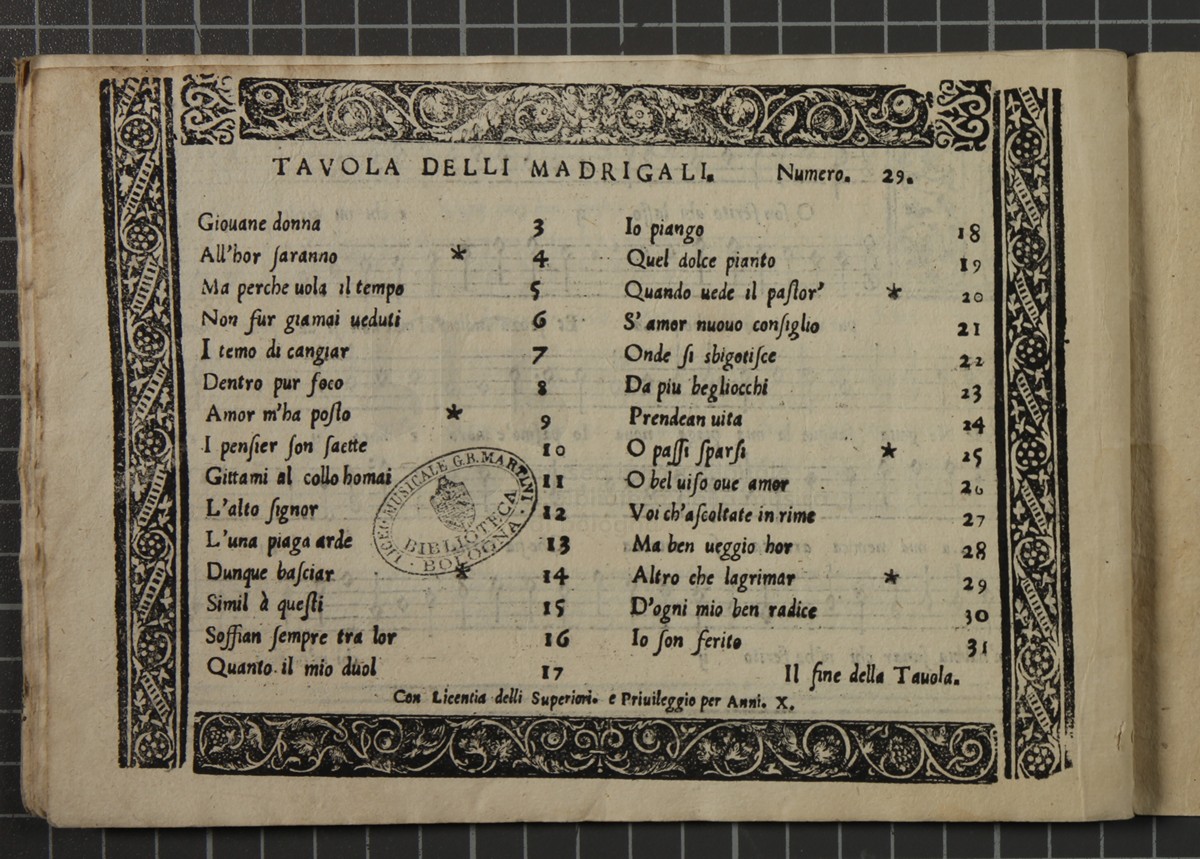 TAVOLA DELLI MADRIGALI. Numero. 29.
Giouane donna 3
All'hor saranno * 4
Ma perche uola il tempo 5
Non fur giamai ueduti 6
I temo di cangiar 7
Dentro pur foco 8
Amor m'ha posto * 9
I pensier son saette 10
Gittami al collo homai 11
L'alto signor 12
L'una piaga arde 13
Dunque basciar * 14
Simil à questi 15
Soffian sempre tra lor 16
Quanto il mio duol 17
Io piango 18
Quel dolce pianto 19
Quando uede il pastor' * 20
S'amor nuouo consiglio 21
Onde si sbigotisce 22
Da piu begliocchi 23
Prendean uita 24
O passi sparsi * 25
O bel uiso oue amor 26
Voi ch'ascoltate in rime 27
Ma ben ueggio hor 28
Altro che lagrimar * 29
D'ogni mio ben radice 30
Io son ferito 31
Il fine della Tauola.
Con Licentia delli Superiori. e Priuileggio per Anni. X.
LICEO MUSICALE G.B. MARTINI
BIBLIOTECA
BOLOGNA